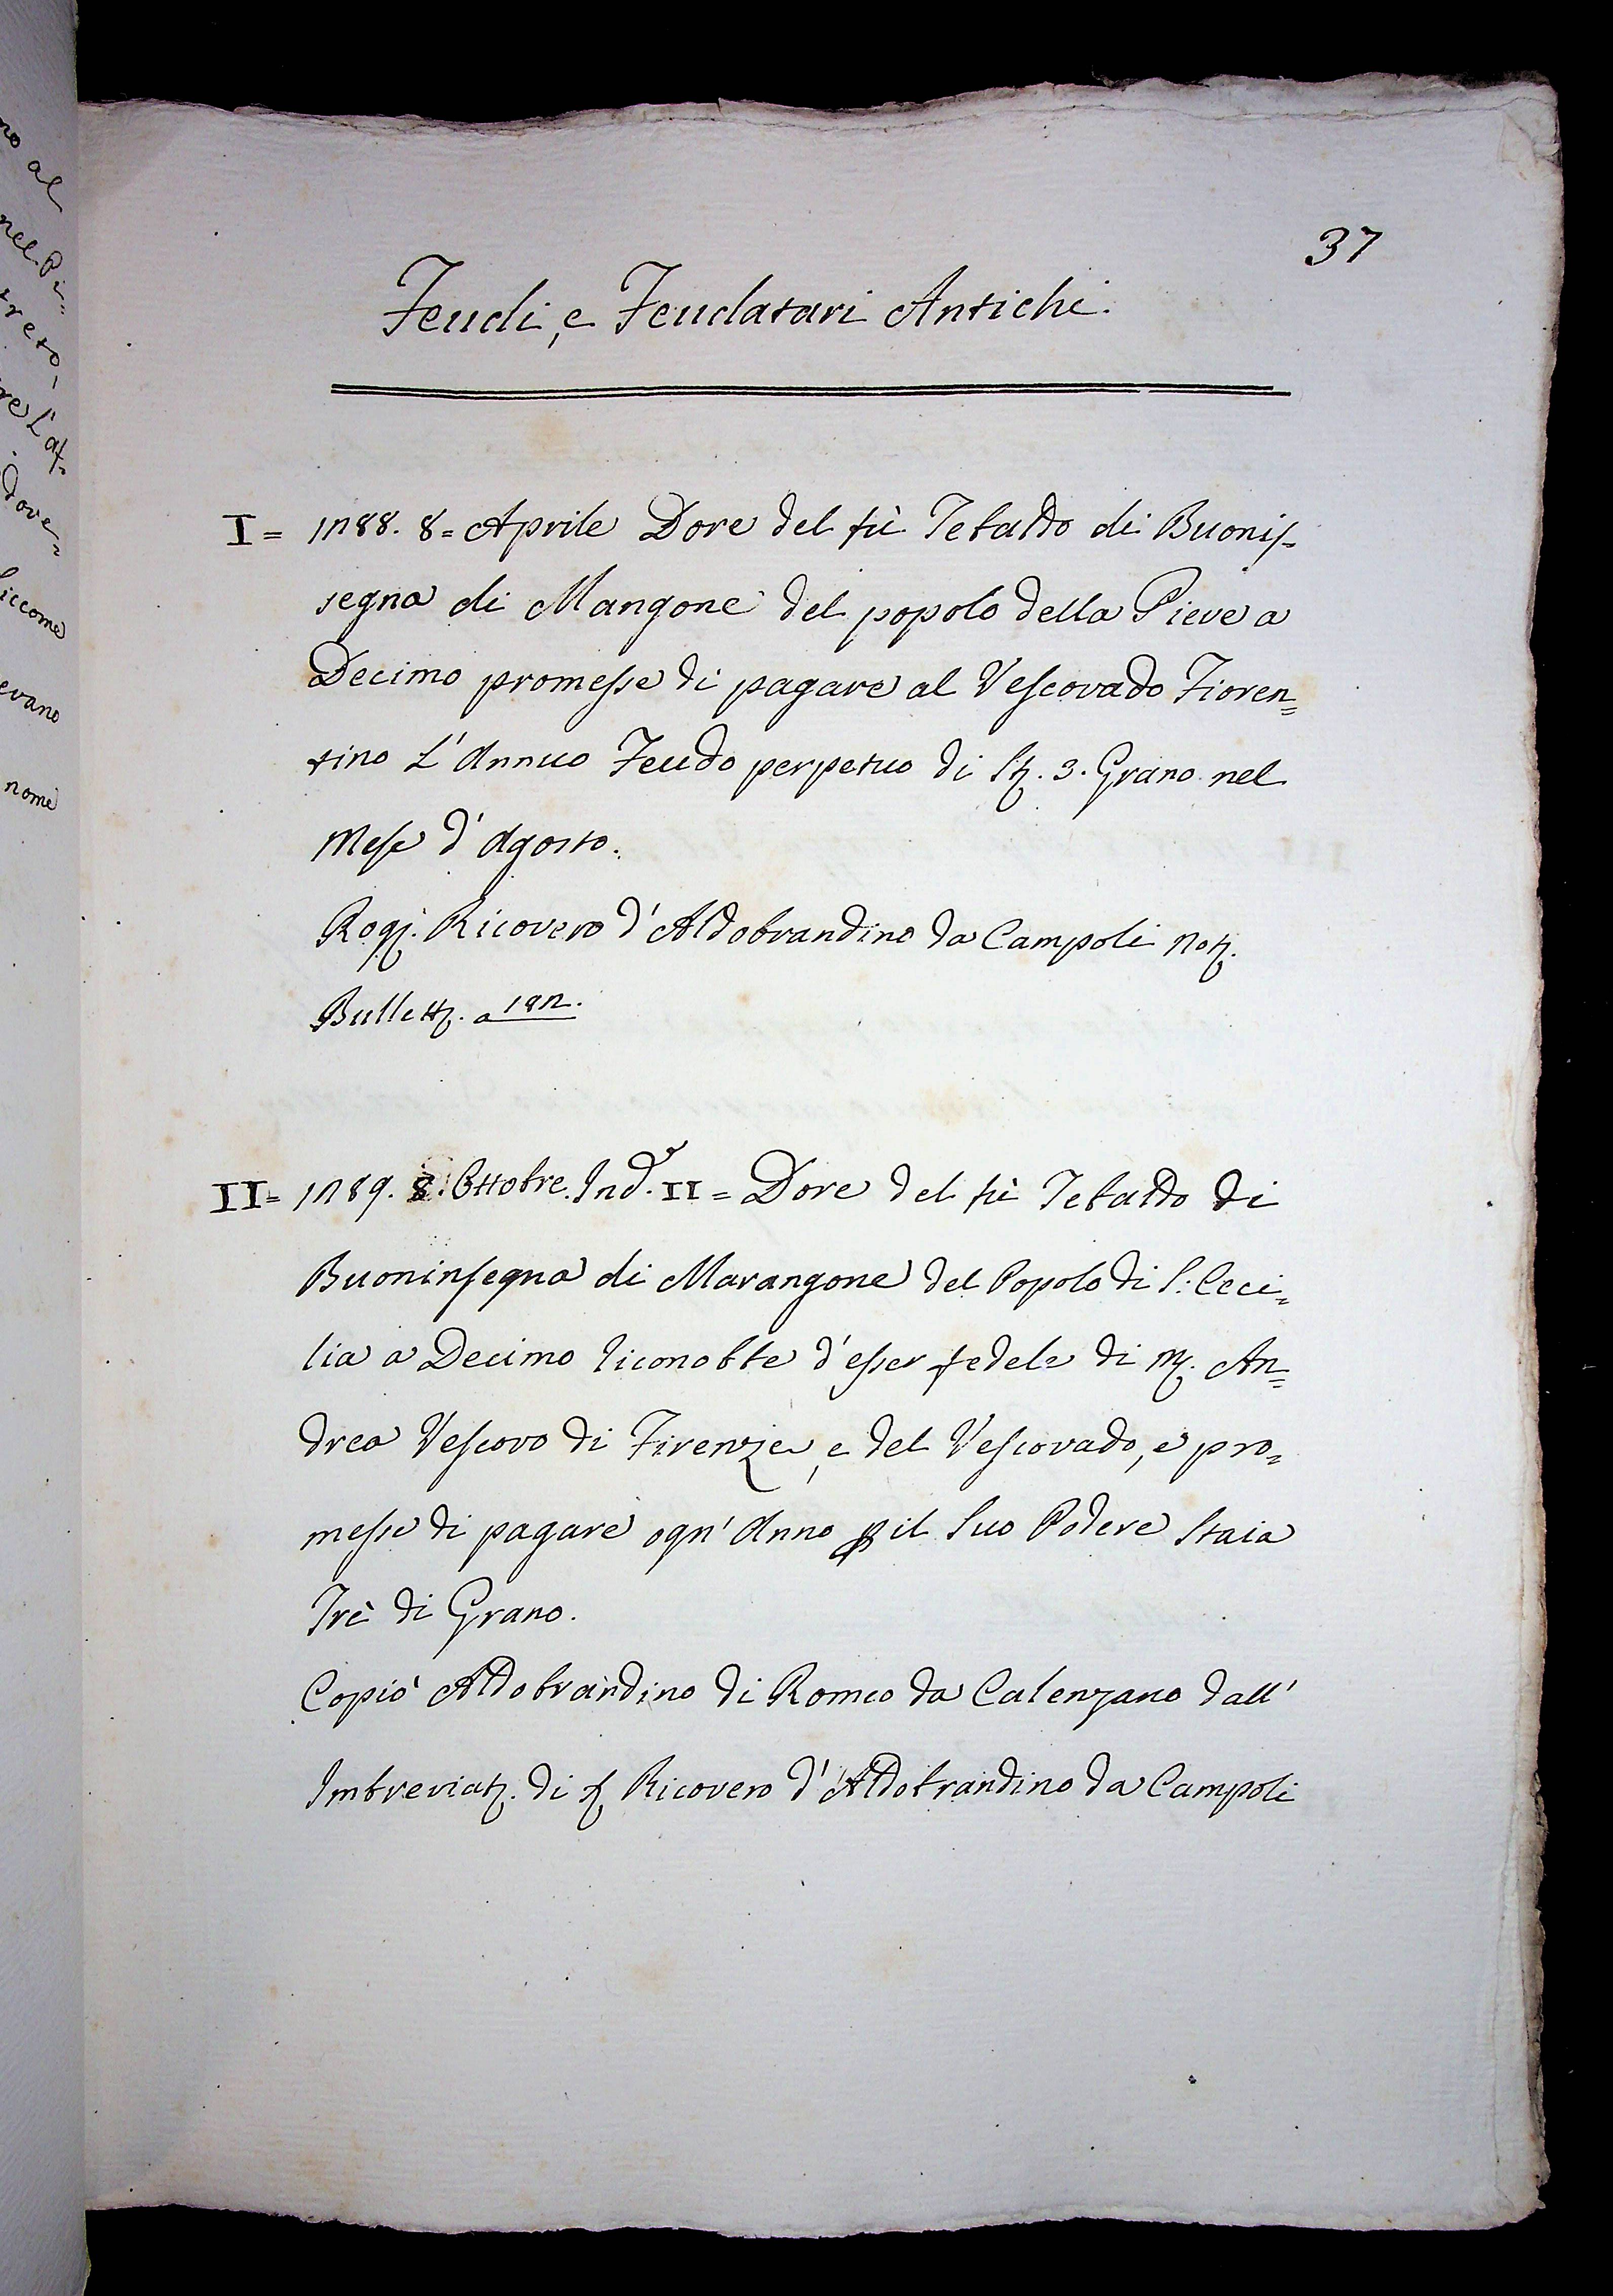 no al
nel Pi=
re L'
dove=
siccome
evano
nome
37
Feudi, e Feudatari Antichi.
I = 1288. 8 = Aprile Dore del fù Tebaldo di Buonis-
segna di Mangone del popolo della Pieve a
Decimo promesse di pagare al Vescovado Fioren=
tino L'Annuo Feudo perpetuo di St. 3. Grano nel
Mese d'Agosto.
Rog. Ricovero d'Aldobrandino da Campoli Not.
Bullett. a 192.
II = 1289. 8. Ottobre. Ind.e II = Dore del fù Tebaldo di
Buoninsegna di Marangone del Popolo di S. Ceci=
lia a Decimo riconobbe d'esser fedele di M. An=
drea Vescovo di Firenze, e del Vescovado, e pro=
messe di pagare ogn'Anno p il suo Podere Staia
Trè di Grano.
Copiò Aldobrandino di Romeo da Calenzano dall'
Imbreviat. di S. Ricovero d'Aldobrandino da Campoli